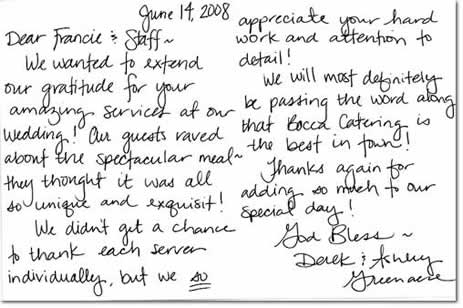 June 14, 2008
Dear Francie & Staff~
We wanted to extend
our gratitude for your
amazing services at our
wedding! Our guests raved
about the spectacular meal~
they thought it was all
so unique and exquisit!
We didn't get a chance
to thank each server
individually, but we so
appreciate your hard
work and attention to
detail!
We will most definitely
be passing the word along
that Bocca Catering is
the best in town!
Thanks again for
adding so much to our
special day!
God Bless~
Derek & Ashley
Greenacre